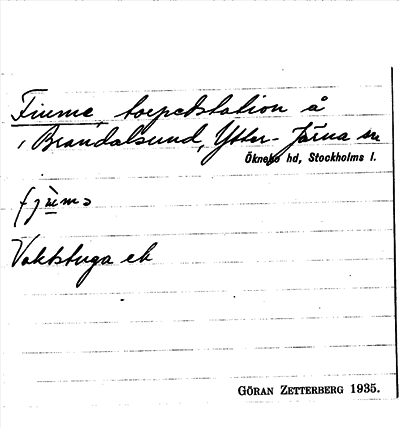 Fiume, torpedstation å
i Brandalsund, Ytter-Järna sn
Öknebo hd, Stockholms l.
Vaktstuga
GÖRAN ZETTERBERG 1935.